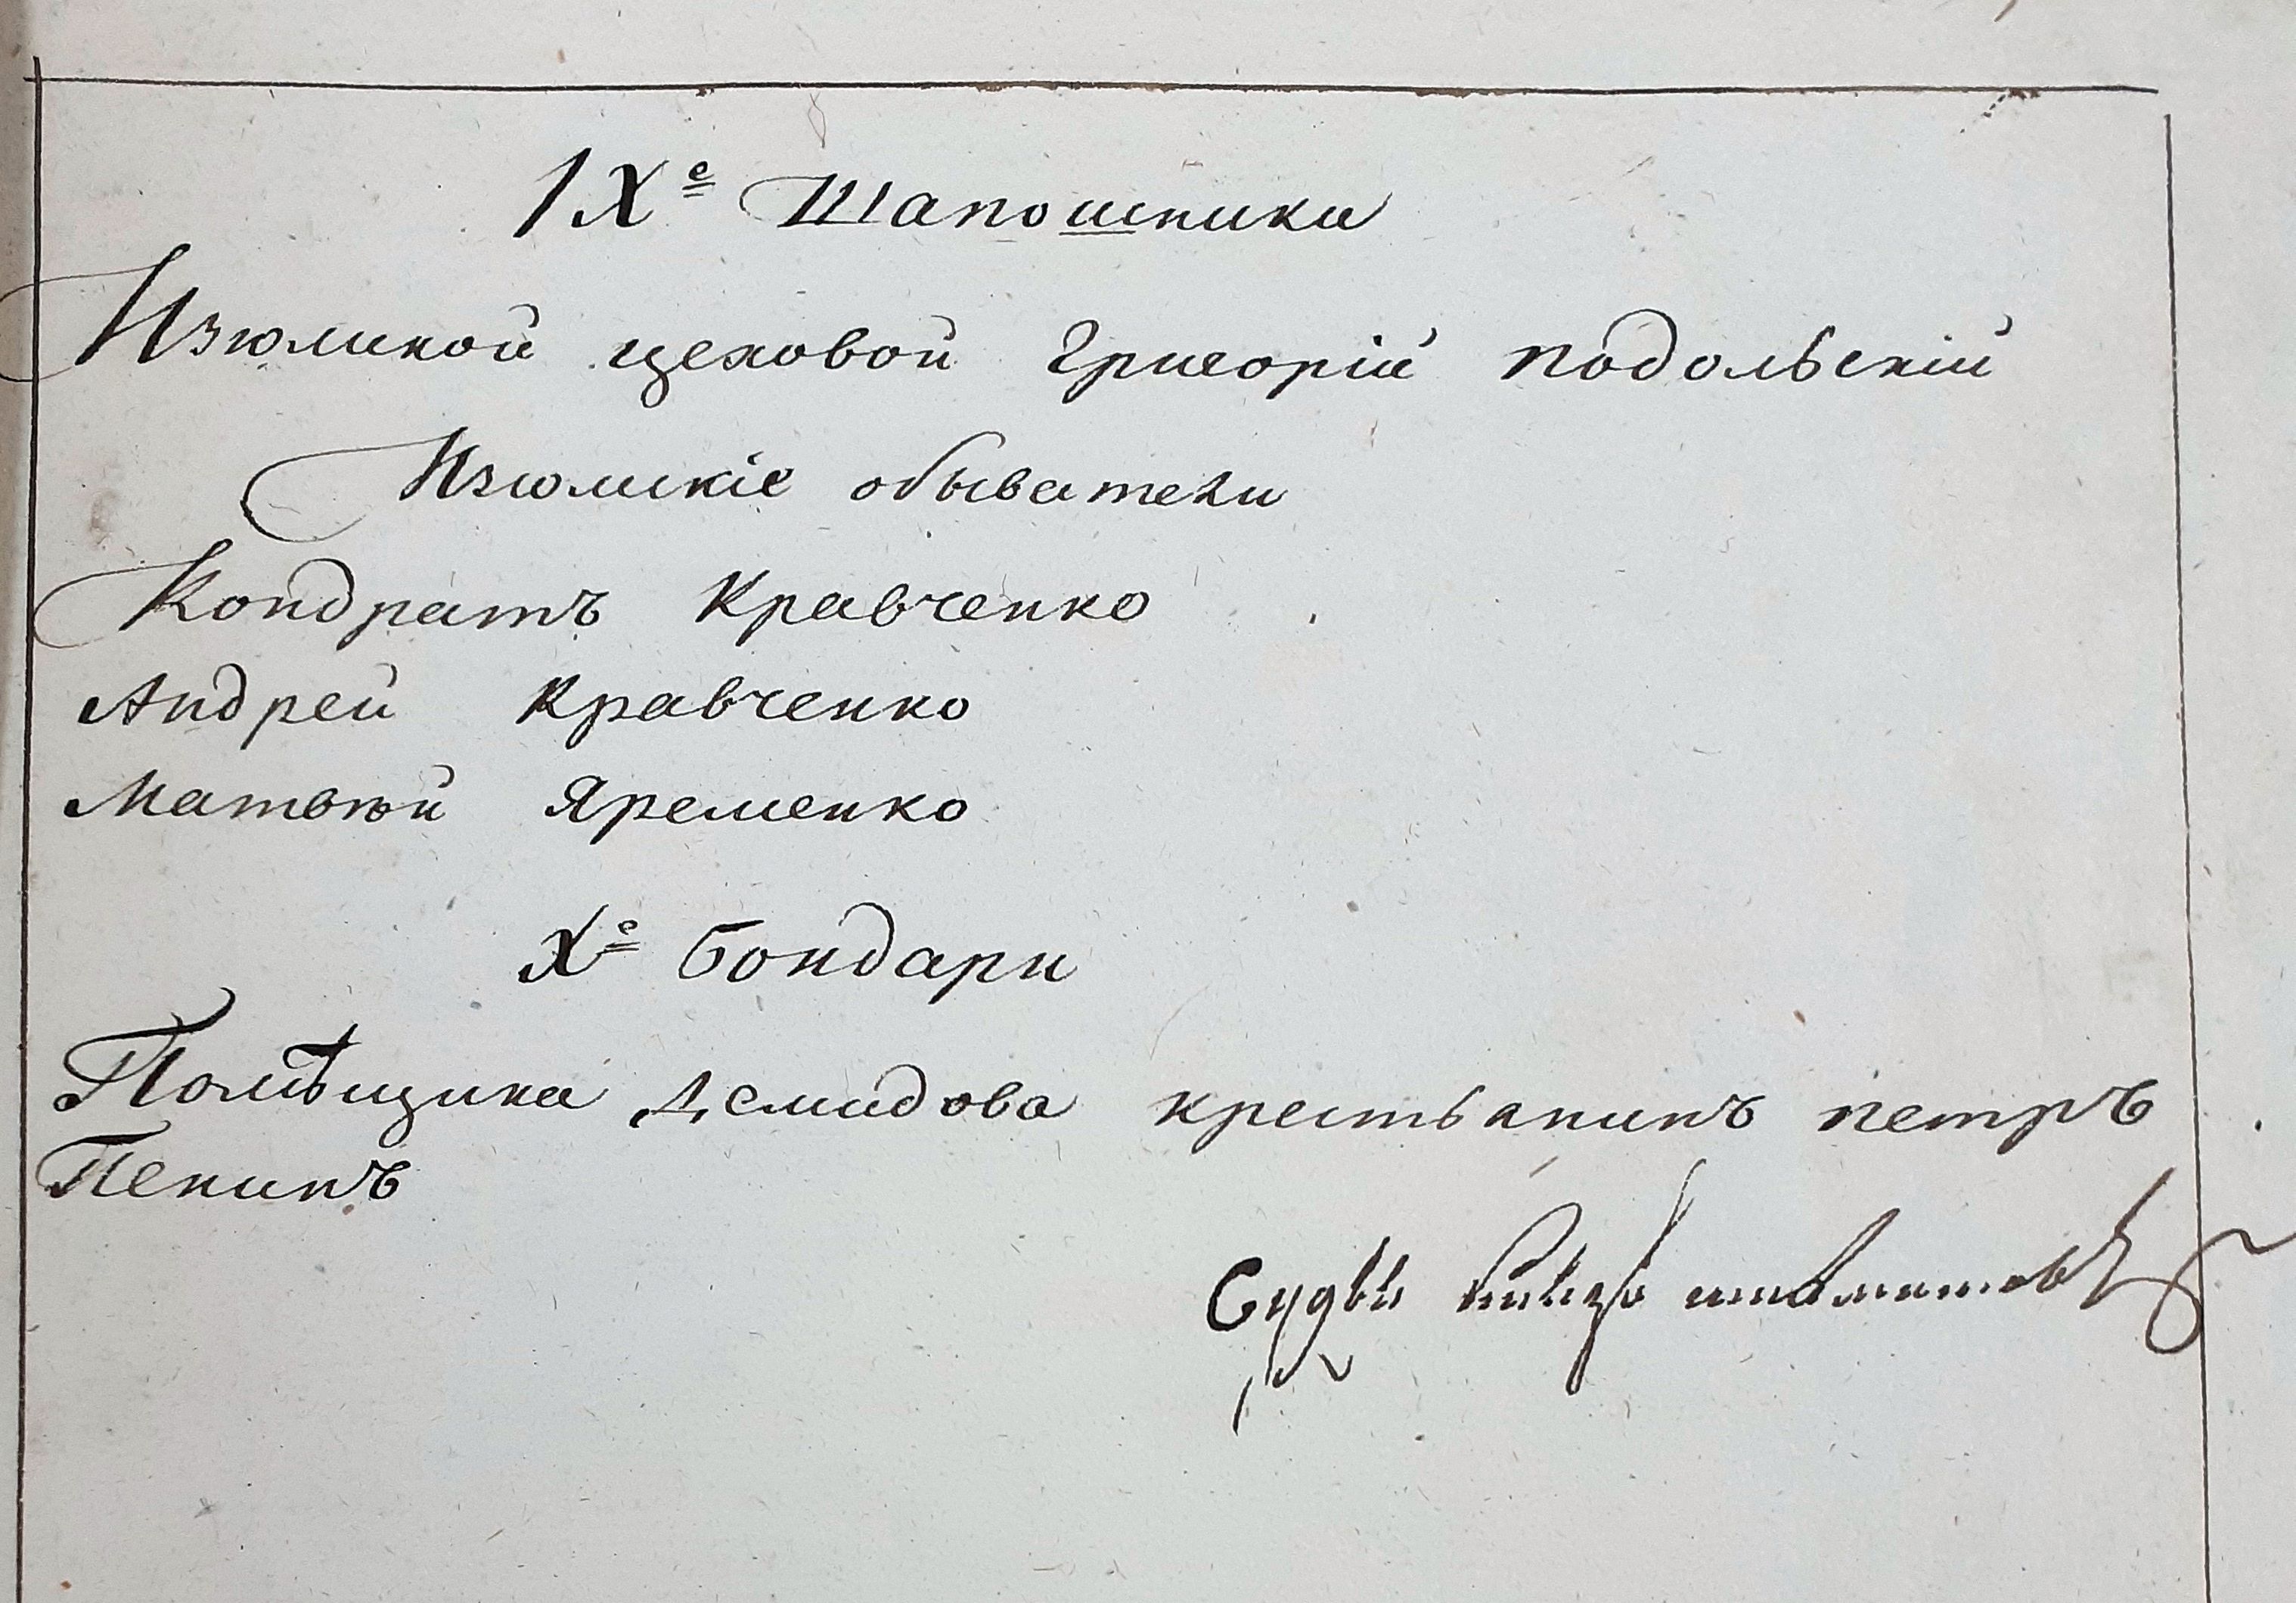 IX<sup>е</sup> Шапошники
Изюмской цеховой Григорій подольскій
Изюмскіе обыватели
Кондратъ Кравченко
Андрей Кравченко
Матвѣй Яременко
X<sup>е</sup> Бондари
Помѣщика Демидова крестьянинъ петръ
Пенинъ
Судьи князь